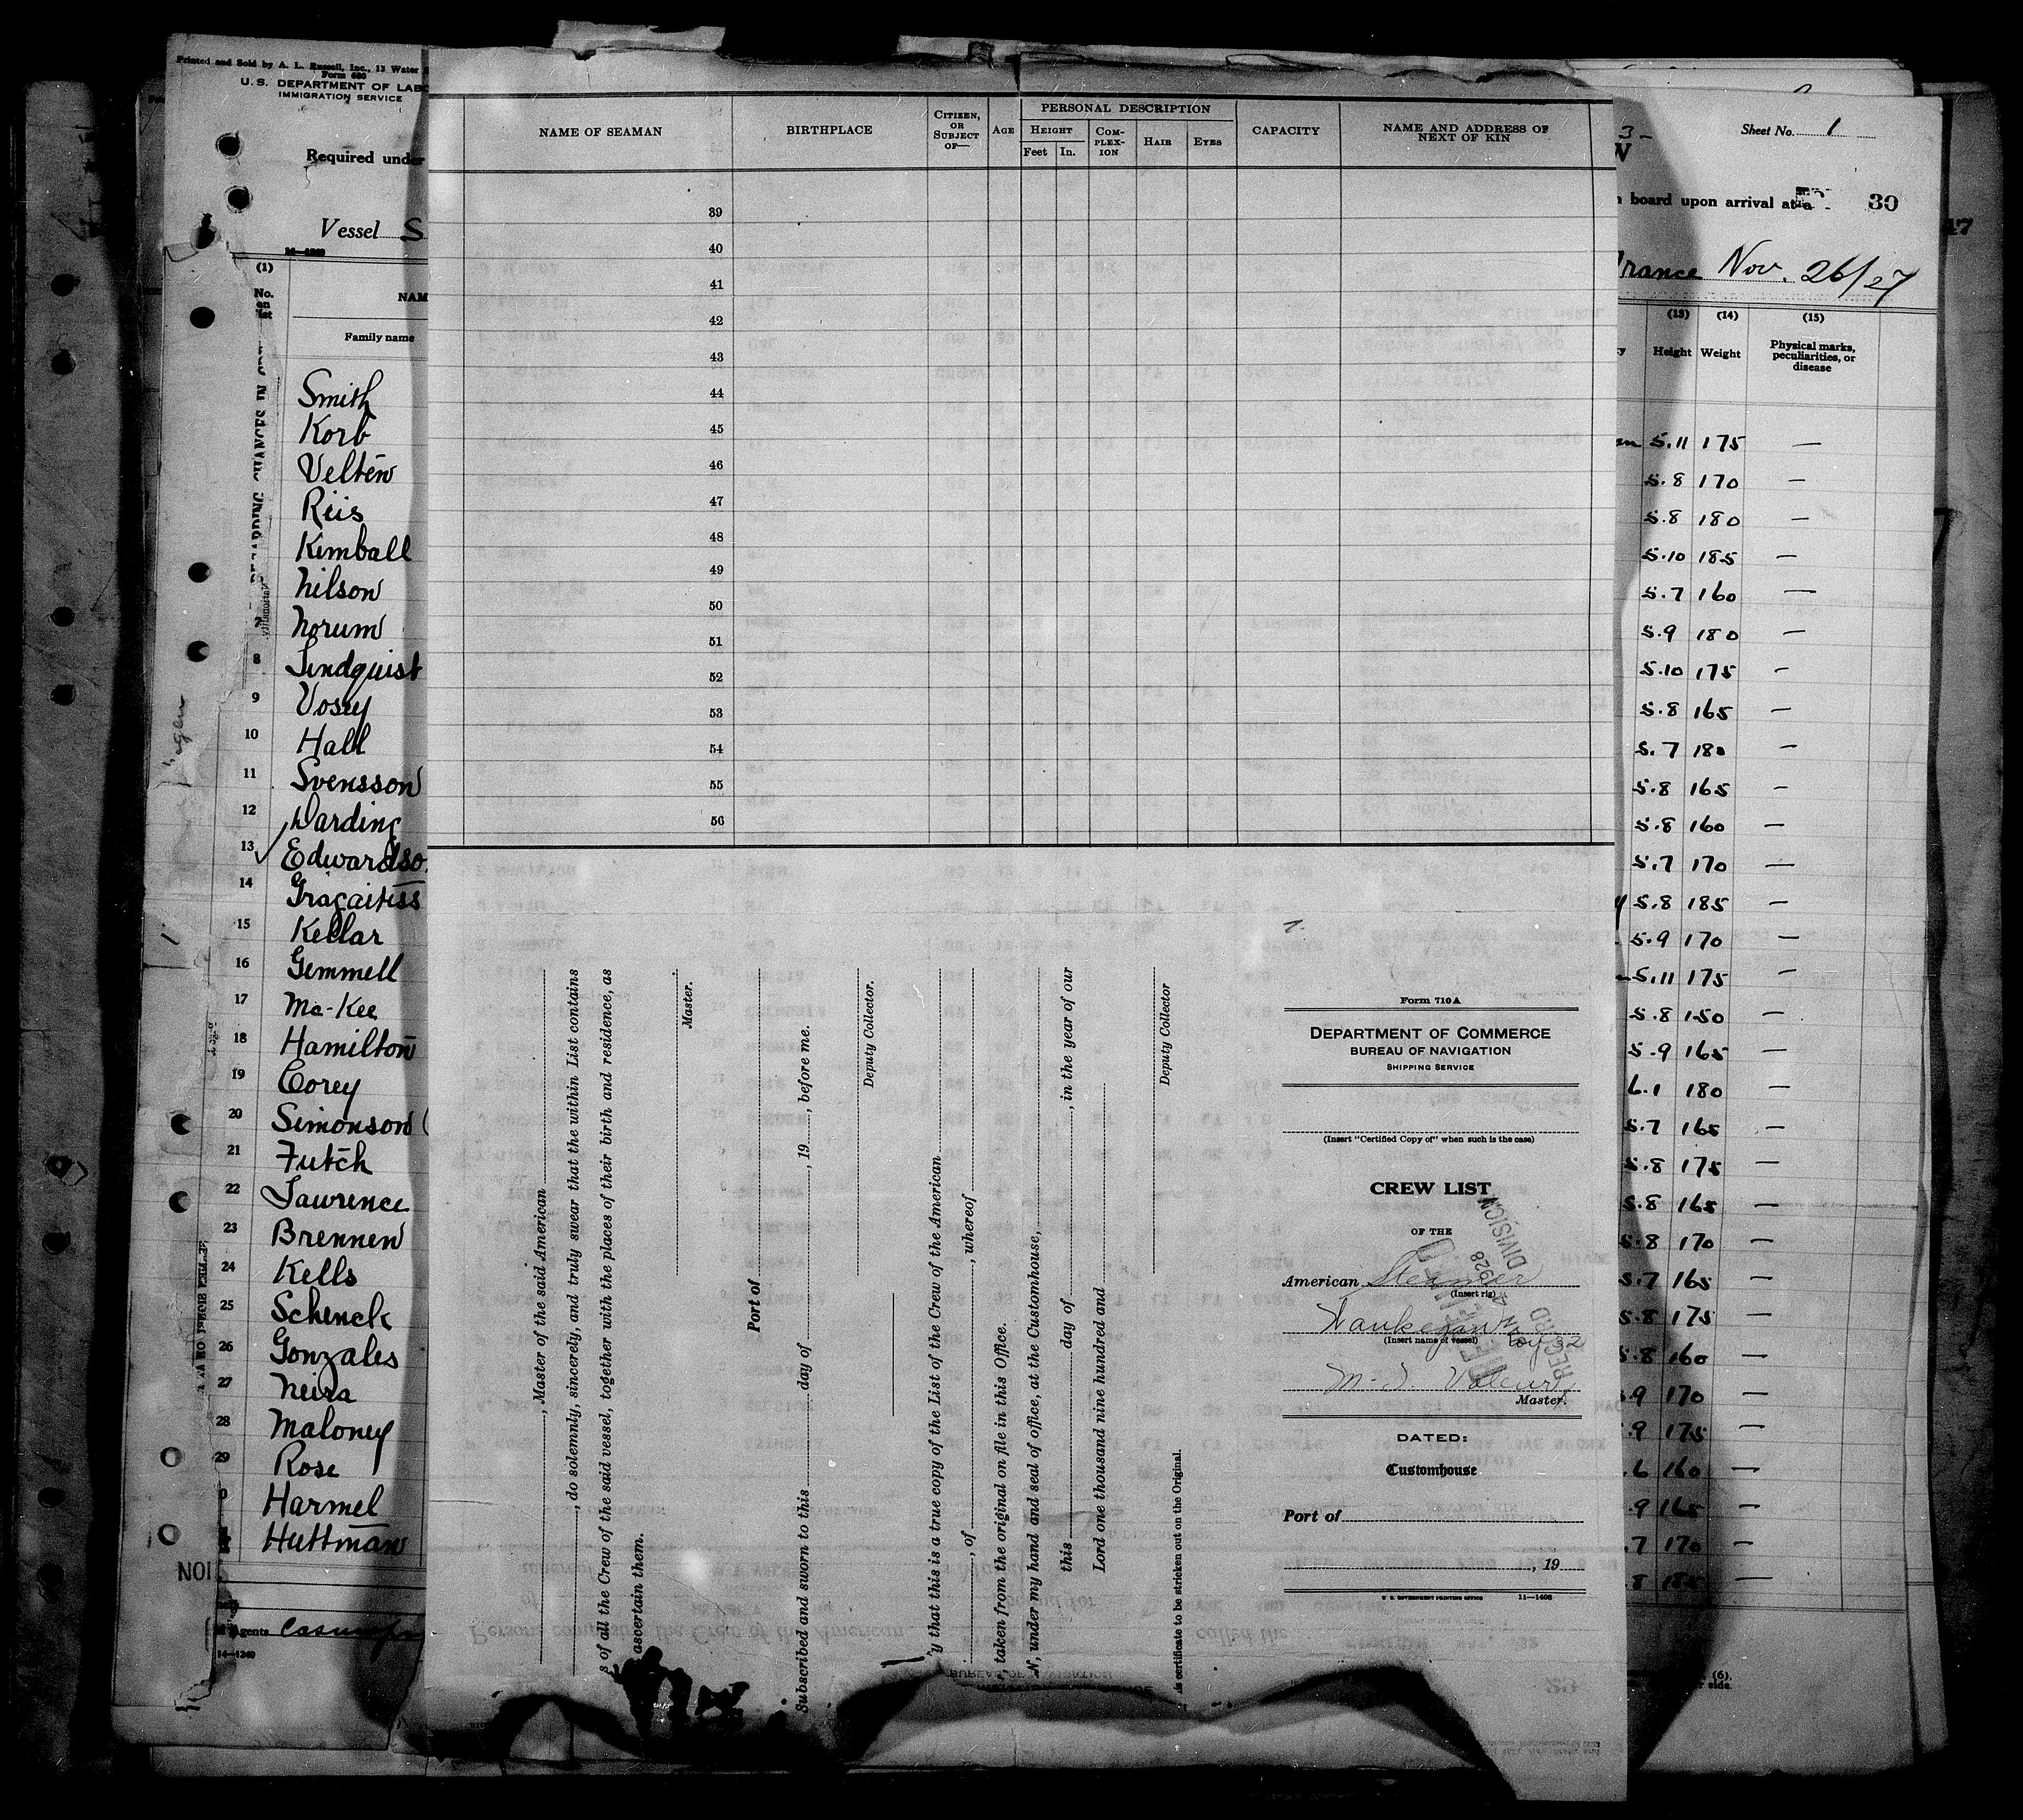 Printed and Sold by A. L. Russell, Inc., 13 Water
Form 680
U. S. DEPARTMENT OF LABO
IMMIGRATION SERVICE
Required under
Vessel S
14—1240
(1)
No. on list
NAM
Family name
Smith
Korb
Velten
Riis
Kimball
Nilson
7 Norum
8 Lindquist
9 Vosey
10 Hall
11 Svensson
12 Darding
13 Edwardso
14 Gragaitiss
15 Kellar
16 Gemmell
17 Mc-Kee
18 Hamilton
19 Corey
20 Simonson
21 Futch
22 Lawrence
23 Brennen
24 Kells
25 Schenck
26 Gonzales
27 Neira
28 Maloney
29 Rose
0 Harmel
Huttman
NOI
Agents
14—1240
NAME OF SEAMAN
BIRTHPLACE
CITIZEN, OR SUBJECT OF—
AGE
PERSONAL DESCRIPTION
HEIGHT
Feet In.
COM-PLEX-ION
HAIR
EYES
CAPACITY
NAME AND ADDRESS OF NEXT OF KIN
39
40
41
42
43
44
45
46
47
48
49
50
51
52
53
54
55
56
, Master of the said American
, do solemnly, sincerely, and truly swear that the within List contains
s of all the Crew of the said vessel, together with the places of their birth and residence, as
ascertain them.
Master.
Port of
Subscribed and sworn to this day of , 19 , before me.
Deputy Collector.
y that this is a true copy of the List of the Crew of the American
, of , whereof
, taken from the original on file in this Office.
N, under my hand and seal of office, at the Customhouse,
this day of , in the year of our
Lord one thousand nine hundred and
Deputy Collector
is certificate to be stricken out on the Original.
Form 710 A
DEPARTMENT OF COMMERCE
BUREAU OF NAVIGATION
SHIPPING SERVICE
(Insert "Certified Copy of" when such is the case)
CREW LIST
OF THE
American Steamer
(Insert rig)
Waukegan Voy 32
(Insert name of vessel)
Master.
DATED:
Customhouse
Port of
, 19
U. S. GOVERNMENT PRINTING OFFICE 11—1406
1928
RECORD DIVISION
Sheet No. 1
board upon arrival at a
30
France Nov. 26/27
(13) (14) (15)
Height Weight
Physical marks, peculiarities, or disease
5.11 175 —
5.8 170 —
5.8 180 —
5.10 185 —
5.7 160 —
5.9 180 —
5.10 175 —
5.8 165 —
5.7 180 —
5.8 165 —
5.8 160 —
5.7 170 —
5.8 185 —
5.9 170 —
5.11 175 —
5.8 150 —
5.9 165 —
6.1 180 —
5.7 165 —
5.8 175 —
5.8 165 —
5.8 170 —
5.7 165 —
5.8 175 —
5.8 160 —
.9 170 —
.9 175 —
.6 160 —
.9 165 —
.7 170 —
.8 185 —
(6).
side.